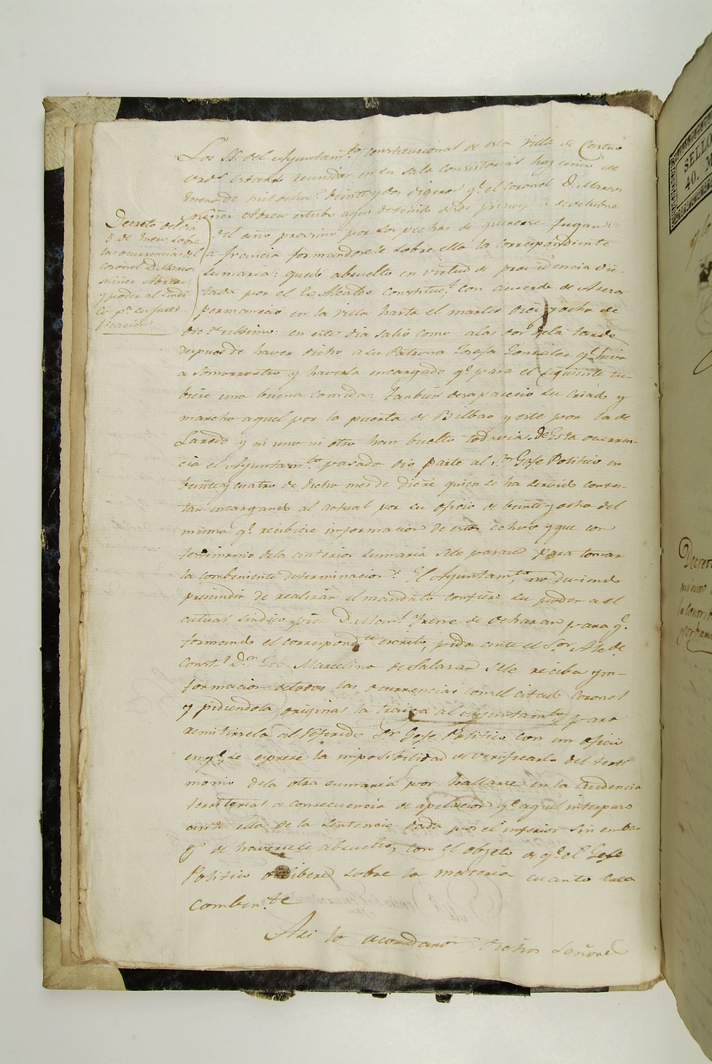 Los SS. del Ayuntamto constitucional de esta Villa de Castro
Urds. estando reunida en su Sala Consistorial hoy cinco de
Enero de mil ochos. veinte y dos digeron qe. el Coronel D. Marcos
nuñez Abreu estubo aqui detenido desde primeros de octubre
del año procsimo por sospechas de quererse fugar
a francia formandosele sobre ello la correspondiente
sumaria: quedo absuelto en virtud de providencia dic-
tada por el Alcalde Constitucl. con acuerdo de Asesor
permanecio en la villa hasta el martes diez y ocho de
Dice. ultimo: en este dia salio como a las dos de la tarde
despues de haver dicho a su Patrona Josefa Gonzalez qe. hiva
a Somorrostro y haverla encargado qe. para el siguiente tu-
biese una buena comida. Tambien desaparecio su Criado y
marcho aquel por la puerta de Bilbao y este por la de
Laredo y ni uno ni otro han buelto todavia. De esta ocurren-
cia el Ayuntamto. pasado dio parte al Sr. Gefe Politico en
veinte y cuatro de dicho mes de Dice. quien se ha servido contes-
tar encargando al actual por su oficio de veinte y ocho del
mismo qe. recibiese informacion de estos echos y que con
testimonio de la anterior sumaria se le pasase para tomar
la combeniente determinacion. El Ayuntamto. no deviendo
prescindir de realizar el mandato confiere su poder a el
actual Sindico pror. D. Manl. Freire de para qe.
formando el correspondte. escrito, pida ante el Sor. Alcde.
Constl. Dn. José Marcelino de Salazar se le reciba yn-
formacion de todas las ocurrencias con el citado Coronel
y pidiendola original la traiga al Ayuntamto. para
remitirsela al referido Sr. Gefe Politico con un oficio
en qe. se exprese la imposibilidad de verificarlo del testi
monio de la otra sumaria por hallarse en la Audiencia
territorial a consecuencia de apelacion qe. aquel interpuso
ante ella de la Sentencia dada por el inferior sin embar
go de haversele absuelto, con el objeto de qe. el Gefe
Politico delibere sobre la materia cuanto crea
combente.
Asi lo acordaron dichos Señores
Decreto del dia
5 de Enero sobre
la ocurrencia del
Coronel D. Marcos
nuñez Abreu
y poder al Sindi
co pa. su justi
ficacion
SELLO
40. M
Decreto